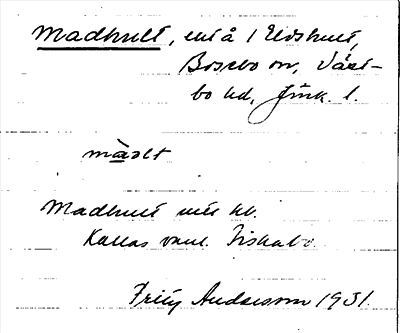 Madhult, ett å 1 Eldshult,
Bosebo sn, Väst-
bo hd, Jönk. l.
màdlt
Madhult utt. hl.
Kallas vanl. Fiskabo.
Fritz Andersson 1931.